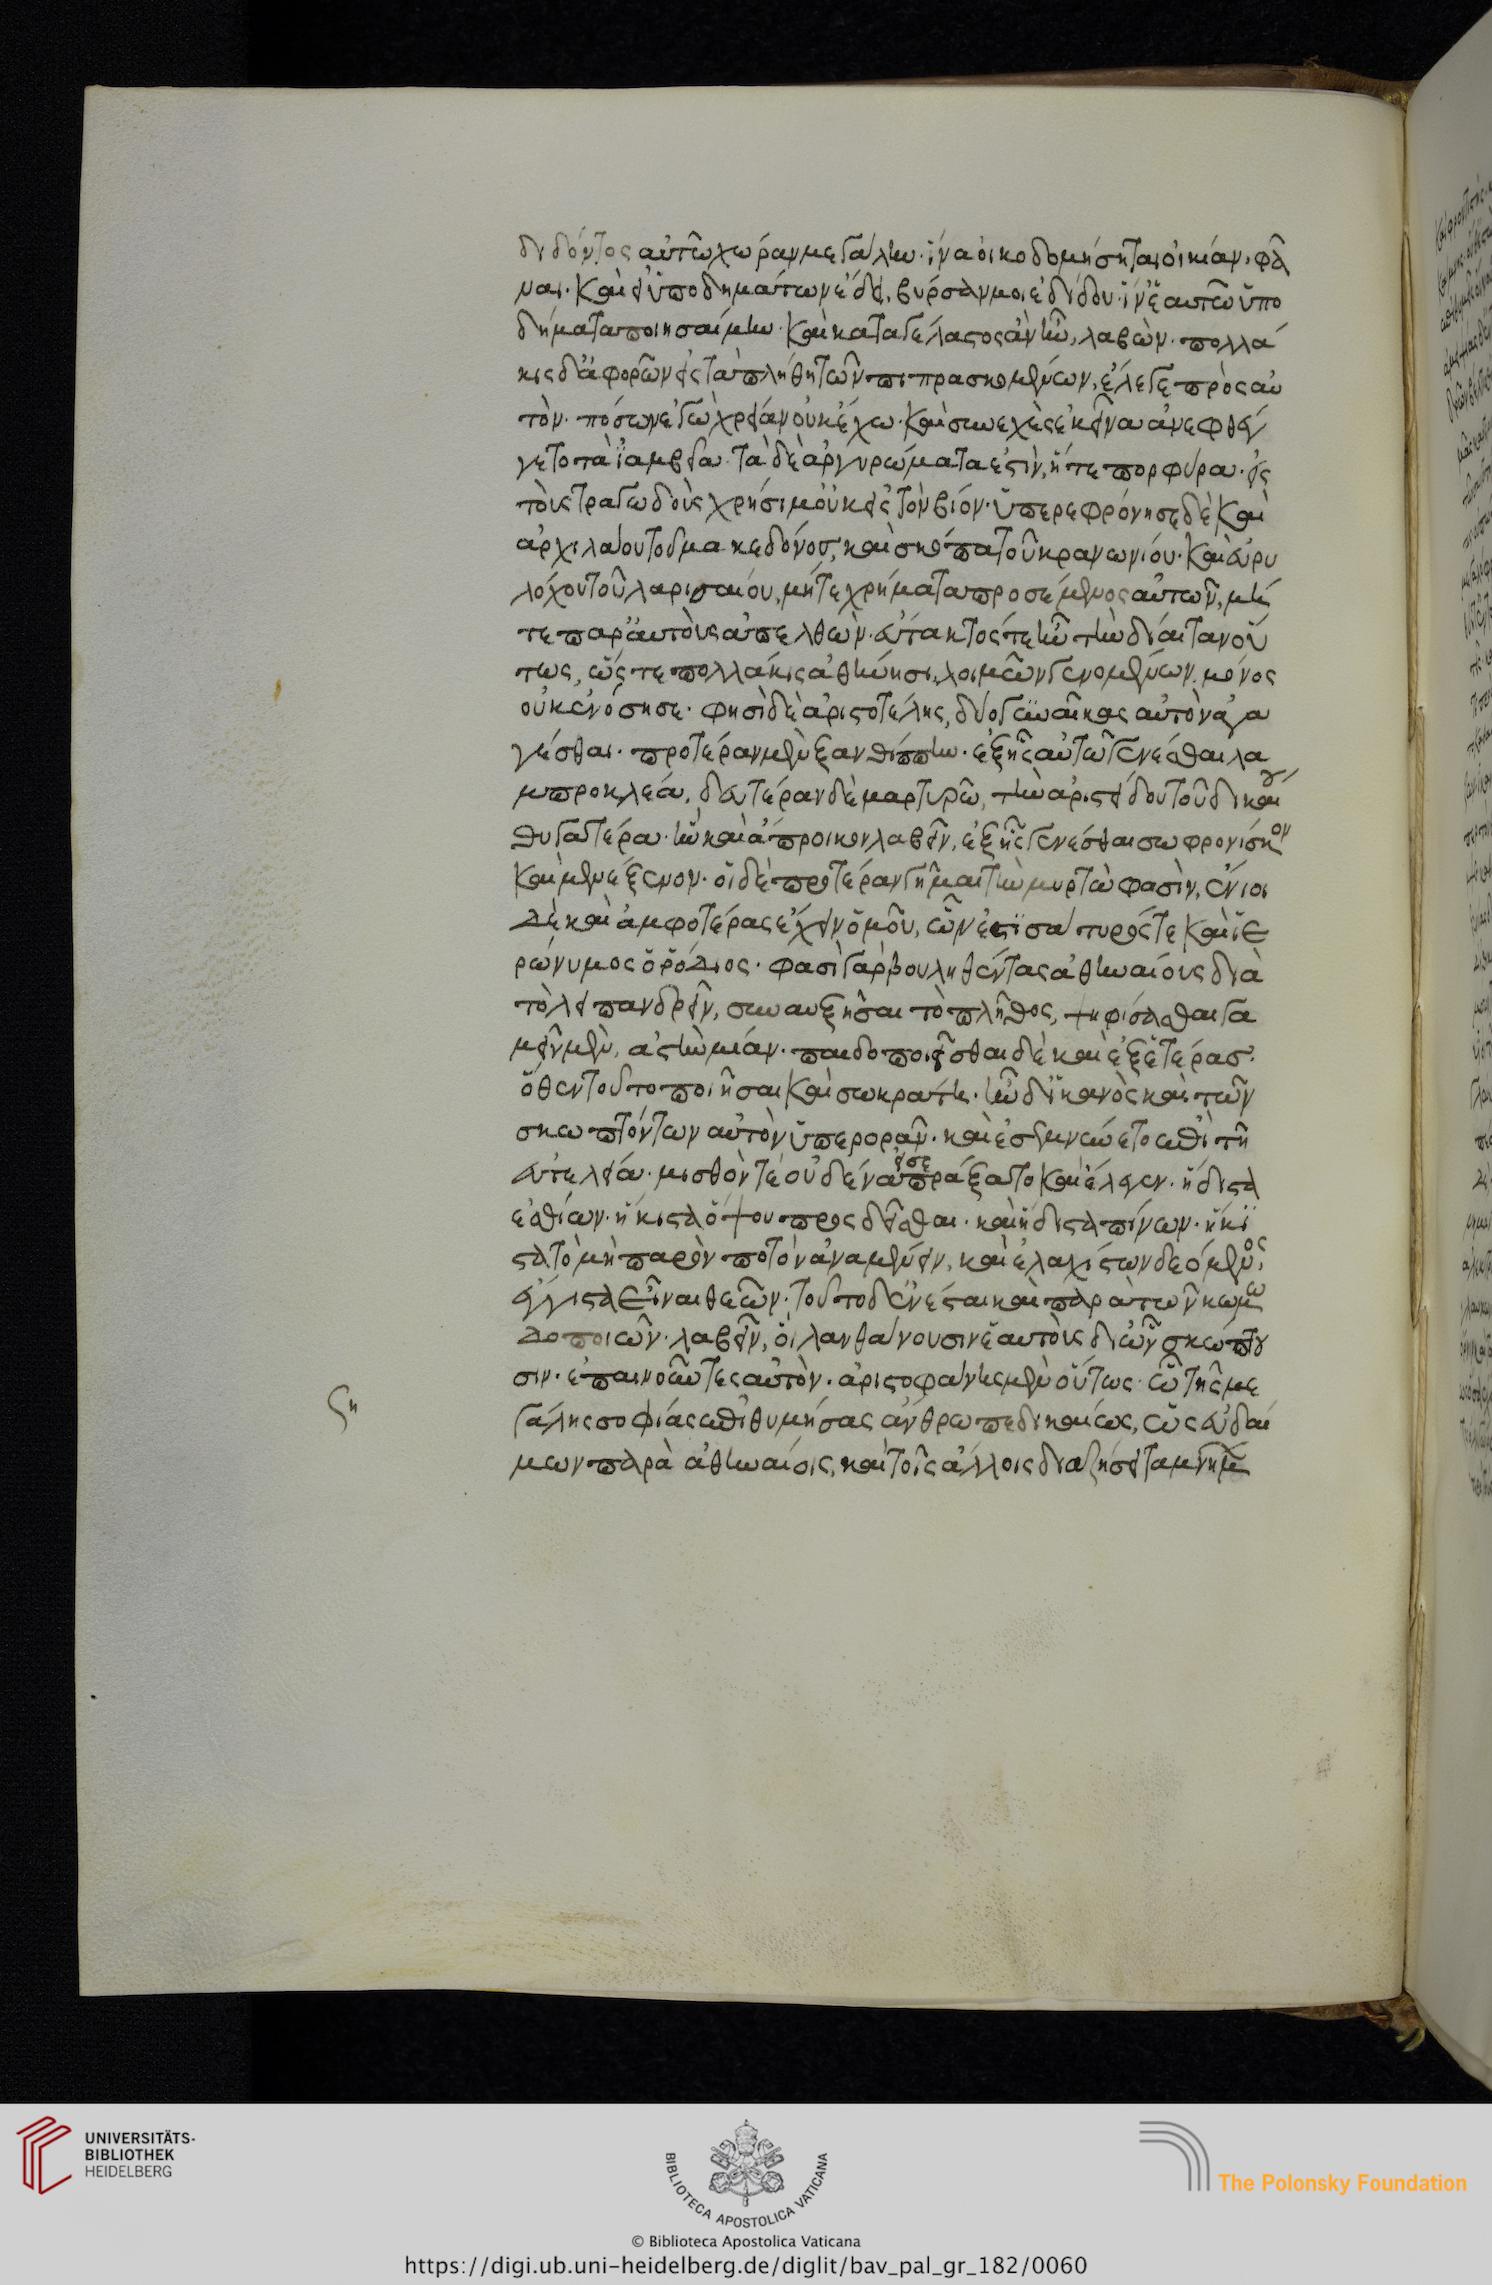 διδόντος αὐτῶ χώραν μεγάλην· ἵνα οἰκοδομήσηται οἰκίαν· φά
ναι· καὶ εἰ ὑποδημάτων ἔδει, βύρσαν μοι ἐδίδου· ἵν' ἐξ αυτῶ ὑπο
δήματα ποιησαίμην· καὶ καταγέλαστος ἂν ἦν, λαβών· πολλά
κις δ' ἀφορῶν εἰς τὰ πλήθη τῶν πιπρασκομένων, ἔλεγε πρὸς αὑ
τὸν· πόσων ἐγὼ χρείαν οὐκ ἔχω· καὶ συνεχὲς ἐκεῖνα ἀνεφθέγ
γετο τὰ ἰαμβεῖα· τὰ δὲ ἀργυρώματα ἐστὶν, ἥ τε πορφύρα· εἰς
τοὺς τραγωδοὺς χρήσιμ' οὐκ εἰς τὸν βίον· ὑπερεφρόνησε δὲ καὶ
ἀρχελάου τοῦ μακεδόνος, καὶ σκόπα τοῦ κρανωνίου· καὶ εὐρυ
λόχου τοῦ λαρισαίου, μήτε χρήματα προσέμενος αὐτῶν, μή
τε παρ' αὐτοὺς ἀπελθών· εὔτακτός τε ἦν τὴν δίαιταν οὕ
τως, ὥς τε πολλάκις ἀθήνησι, λοιμῶν γενομένων, μόνος
οὐκ ἐνόσησε· φησὶ δὲ ἀριστοτέλης, δύο γυναῖκας αὐτὸν ἀγα
γέσθαι· προτέραν μὲν ξανθίππην· ἐξ ἧς αὐτῶ γενέσθαι λα
μπροκλέα, δευτέραν δὲ μαρτυρῶ, τὴν ἀριστείδου τοῦ δικαίου
θυγατέρα· ἣν καὶ ἄπροικον λαβεῖν, ἐξ ἧς γενέσθαι σωφρονίσκον
καὶ μενέξενον· οἱ δὲ προτέραν γῆμαι τὴν μυρτὼ φασὶν, ἔνιοι
δὲ καὶ ἀμφοτέρας ἔχειν ὁμοῦ, ὧν ἐστὶ σάτυρός τε καὶ ἱε
ρώνυμος ὁ ῥόδιος· φασὶ γὰρ βουληθέντας ἀθηναίους διὰ
τὸ λειπανδρεῖν, συναυξῆσαι τὸ πλῆθος, ψηφίσασθαι γα
μεῖν μὲν, ἀστὴν μίαν· παιδοποιεῖσθαι δὲ καὶ ἐξ ἑτέρας·
ὅθεν τοῦτο ποιῆσαι καὶ σωκράτην· ἦν δ' ἱκανὸς καὶ τῶν
σκωπτόντων αὐτὸν ὑπερορᾶν· καὶ ἐσεμνύνετο ἐπὶ τῆ
εὐτελεία· μισθὸν τε οὐδένα εἰσεπράξατο καὶ ἔλεγεν· ἥδιστα
ἐσθίων· ἥκιστα ὄψου προσδεῖσθαι· καὶ ἥδιστα πίνων· ἥκι
στα τὸ μὴ παρὸν ποτὸν ἀναμένειν, καὶ ἐλαχίστων δεόμενος,
ἔγγιστα εἶναι θεῶν· τοῦτο δ' ἐνέσται καὶ παρὰ τῶν κωμω
δοποιῶν· λαβεῖν, οἳ λανθάνουσιν ἑαυτοὺς δι' ὧν σκώπτου
σιν· ἐπαινοῦντες αὐτὸν· ἀριστοφάνης μὲν οὕτως· ὦ τῆς με
ση
γάλης σοφίας ἐπιθυμήσας ἄνθρωπε δικαίως, ὡς εὐδαί
μων παρὰ ἀθηναίοις, καὶ τοῖς ἄλλοις διαζήσει
UNIVERSITÄTS-
BIBLIOTHEK
HEIDELBERG
BIBLIOTECA APOSTOLICA VATICANA
The Polonsky Foundation
© Biblioteca Apostolica Vaticana
https://digi.ub.uni-heidelberg.de/diglit/bav_pal_gr_182/0060